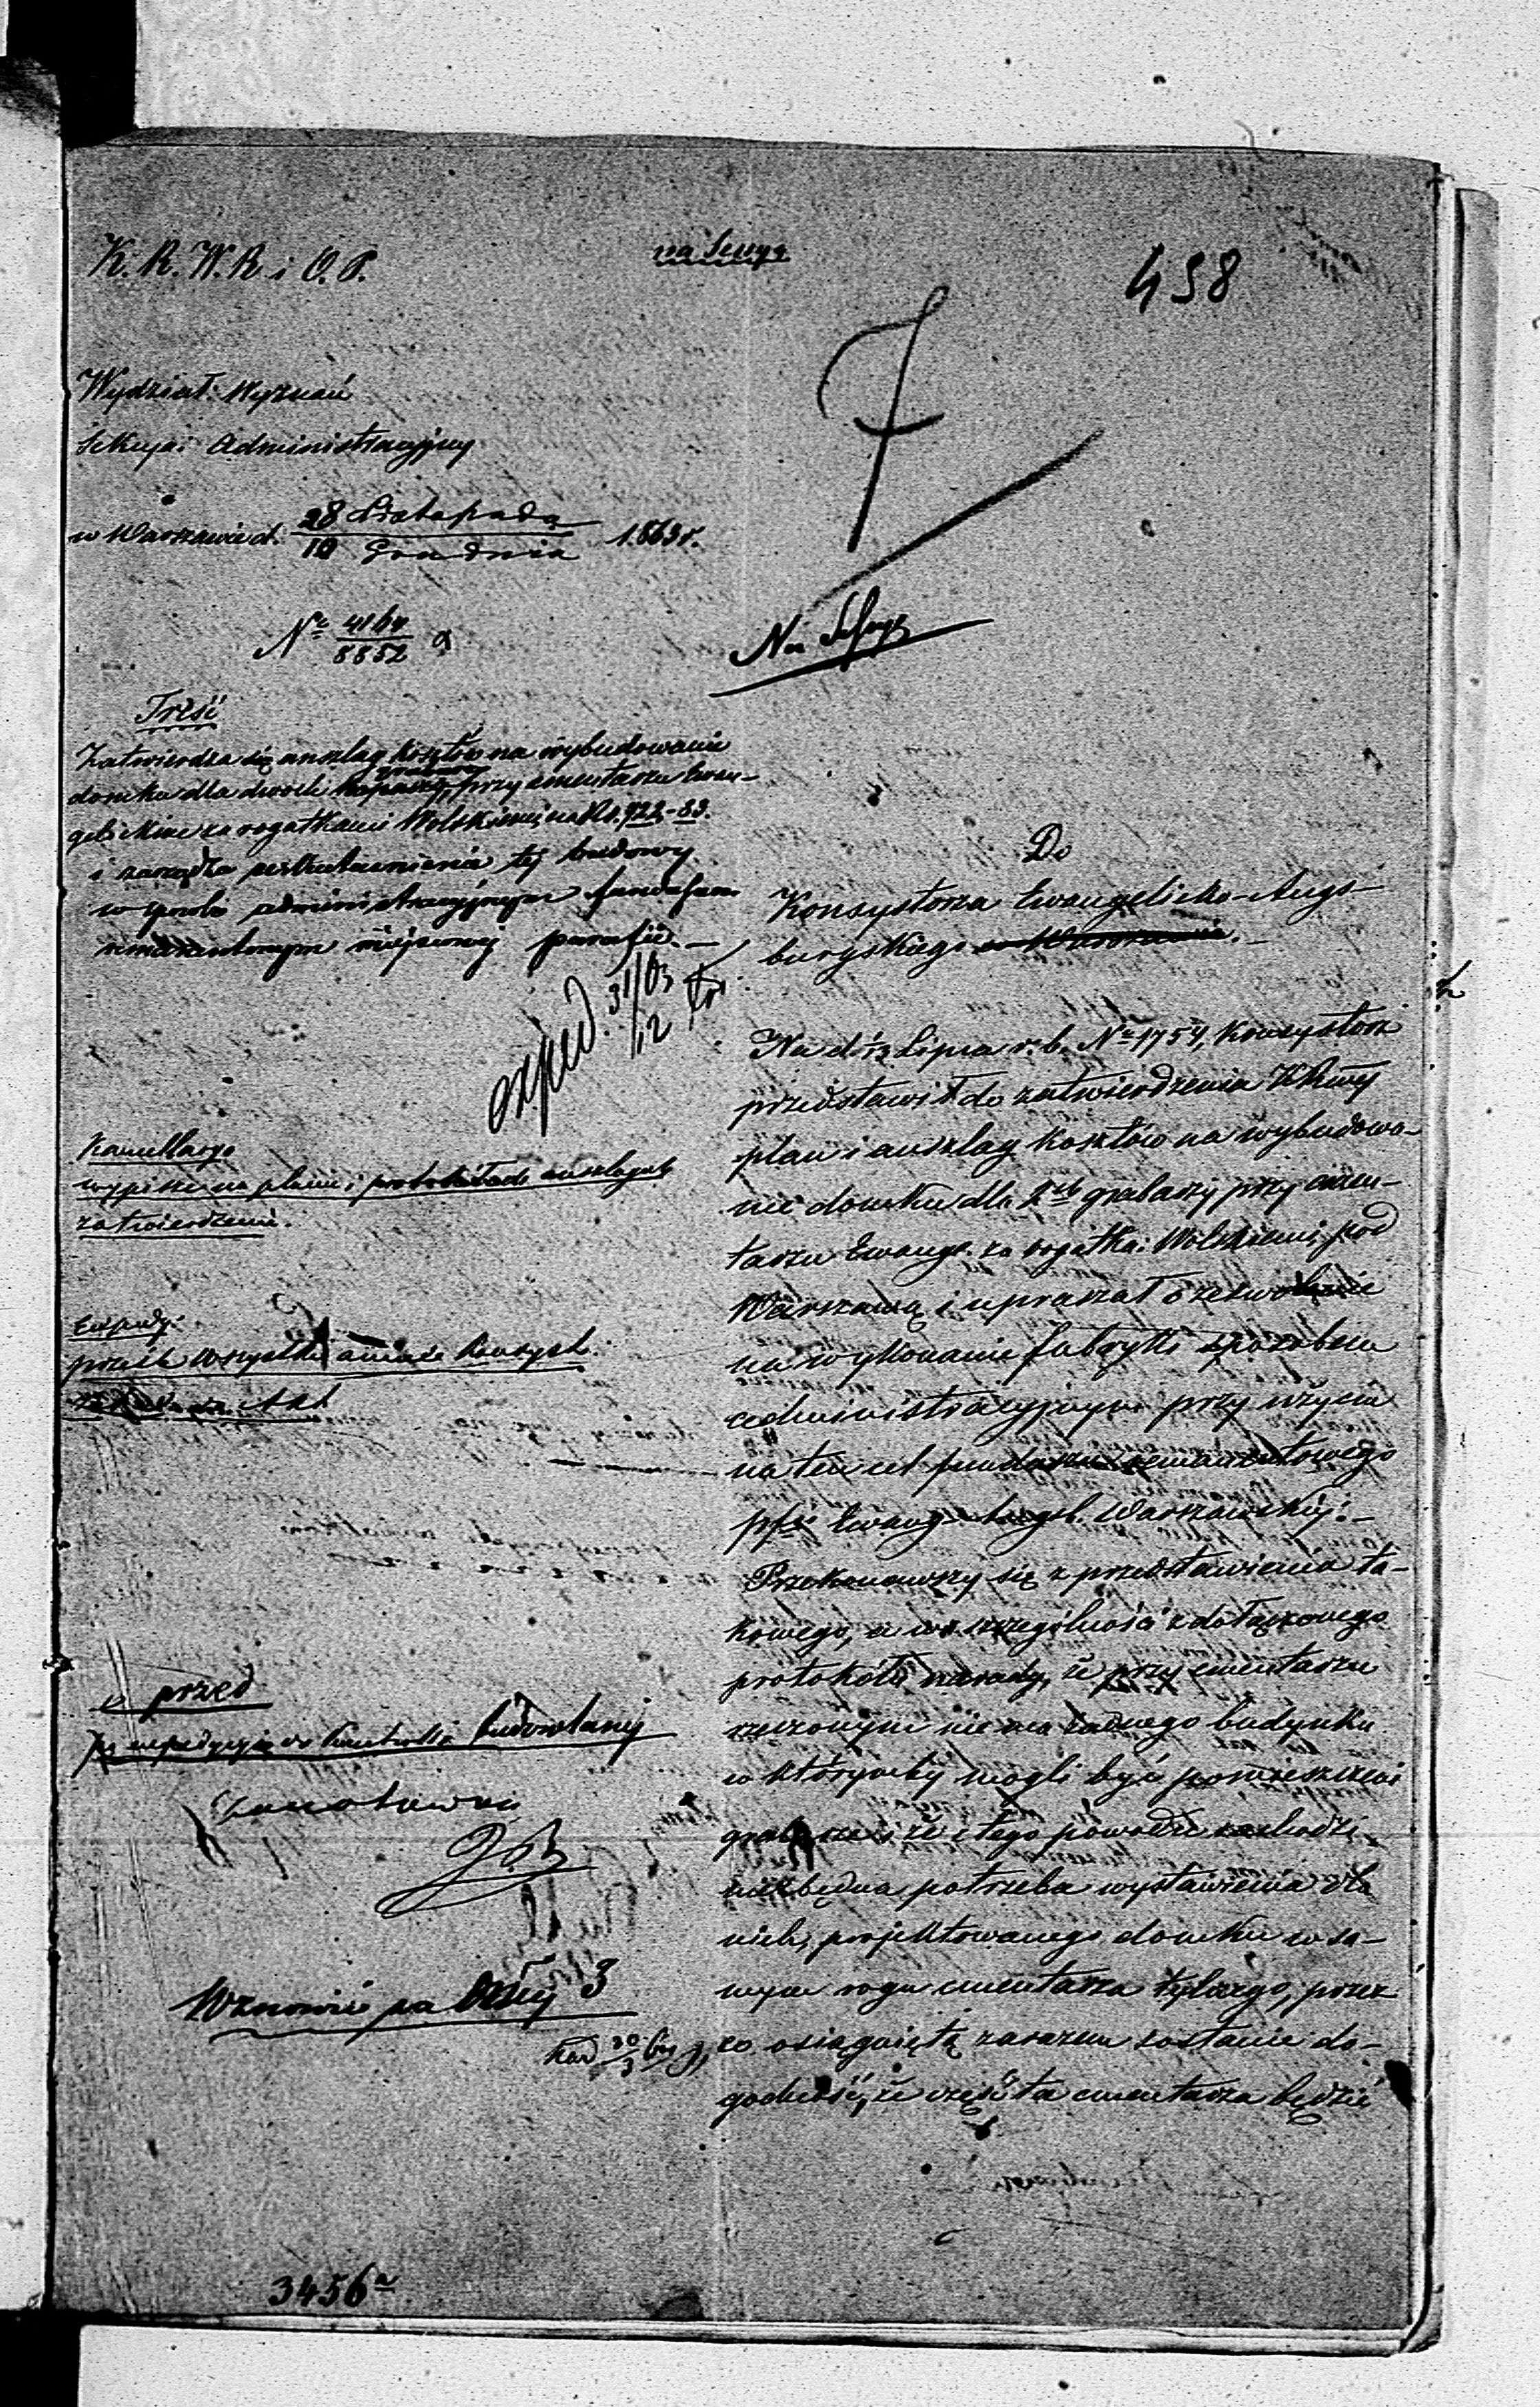 K. R. W. R i O. P.
na Sessyą
458
Wydział: Wyznań
Sekcyja: Administracyjny
w Warszawie d. 28 Listopada / 10 Grudnia 1863 r.
Nr 4164 / 8852
Na Sessyę
Treść
Zatwierdza się anszlag kosztów na wybudowanie
domku dla dwóch przy cmentarzu Ewan-
gelickim za rogatkami Wolskiemi, na Rs. 922-83.
i zarządza tej budowy
w sposób administracyjnym
remanentowym miejscowej parafii.—
exped. 31/12 63
Do
Konsystorza Ewangelicko-Augs-
burskiego w Warszawie.—
Na d. Lipca r. b. Nr 1754, Konsystorz
przedstawił do zatwierdzenia KRząwej
plan i anszlag kosztów na wybudowa-
nie domku dla 2ch grabarzy przy cmen-
tarzu Ewang. za rogatka: Wolskiemi pod
Warszawą i upraszał o zezwolenie
na wykonanie fabryki sposobem
administracyjnym przy użyciu
na ten cel funduszu remanentowego
pfii Ewang-Augsb. Warszawskiej.—
Przekonawszy się z przedstawienia ta-
kowego, a w szczególności z dołączonego
protokółu narady, że przy cmentarzu
rzeczonym nie ma żadnego budynku
w którymby mogli być pomieszczeni
grabarze i że z tego powodu zachodzi
niezbędna potrzeba wystawienia dla
nich, projektowanego domku w sa-
mym rogu cmentarza tylnego, przez
co osiągniętą zarazem zostanie do-
godność, że część ta cmentarza będzie
Kancellarya
wypisze na planie i anszlagu
zatwierdzenie.
Exped:
prześle wszystkie annexa Konsyst.
przed
expedycyją w Kontrolli budowlanej
zanotować
Wznowić za Dni 3
3456